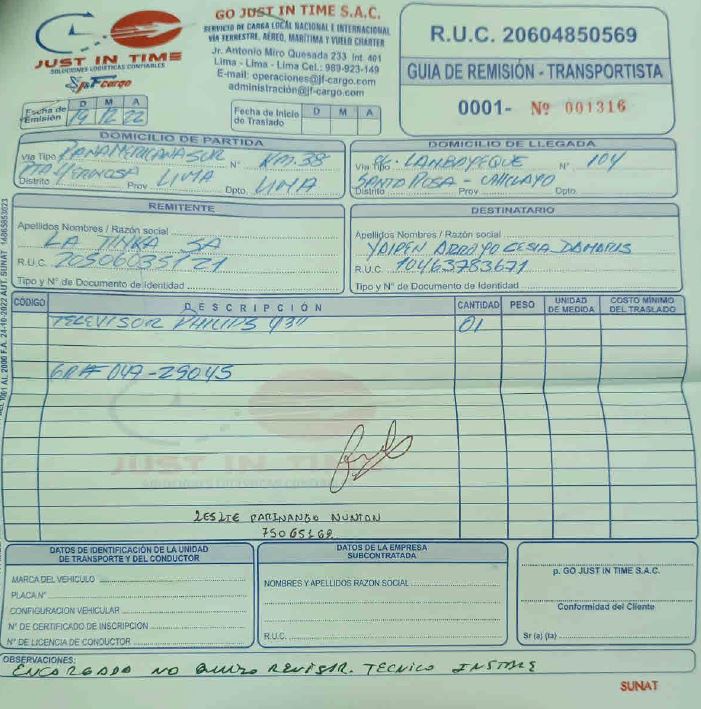 GO JUST IN TIME S.A.C.
SERVICIO DE CARGA LOCAL NACIONAL E INTERNACIONAL
VÍA TERRESTRE, AÉREO, MARÍTIMA Y VUELO CHARTER
Jr. Antonio Miro Quesada 233 Int. 401
Lima - Lima - Lima Cel.: 989-923-149
E-mail: operaciones@jf-cargo.com
administración@jf-cargo.com
JUST IN TIME
SOLUCIONES LOGÍSTICAS CONFIABLES
J&F cargo
R.U.C. 20604850569
GUIA DE REMISIÓN - TRANSPORTISTA
0001- Nº 001316
Fecha de Emisión D M A
19 12 22
Fecha de Inicio de Traslado D M A
DOMICILIO DE PARTIDA
Vía Tipo PANAMERICANA SUR Nº KM.38
PTA HERMOSA LIMA LIMA
Distrito Prov. Dpto.
DOMICILIO DE LLEGADA
Vía Tipo LAMBAYEQUE Nº 104
SANTA ROSA - CHICLAYO
Distrito Prov. Dpto.
REMITENTE
Apellidos Nombres / Razón social
LA TINKA SA
R.U.C. 20506035121
Tipo y N° de Documento de Identidad
DESTINATARIO
Apellidos Nombres / Razón social
YAIPEN ARROYO CESIA DAMARIS
R.U.C. 10463783671
Tipo y N° de Documento de Identidad
CÓDIGO DESCRIPCIÓN CANTIDAD PESO UNIDAD DE MEDIDA COSTO MÍNIMO DEL TRASLADO
TELEVISOR PHILIPS 43" 01
047-29045
JUST IN TIME
LESLIE NUNTON
75065169
DATOS DE IDENTIFICACIÓN DE LA UNIDAD
DE TRANSPORTE Y DEL CONDUCTOR
MARCA DEL VEHICULO
PLACA N°
CONFIGURACIÓN VEHICULAR
N° DE CERTIFICADO DE INSCRIPCIÓN
N° DE LICENCIA DE CONDUCTOR
DATOS DE LA EMPRESA
SUBCONTRATADA
NOMBRES Y APELLIDOS RAZON SOCIAL
R.U.C.
p. GO JUST IN TIME S.A.C.
Conformidad del Cliente
Sr (a) (ta)
OBSERVACIONES:
ENCARGADA NO QUIZO REVISAR. TECNICO INSTALE
SUNAT